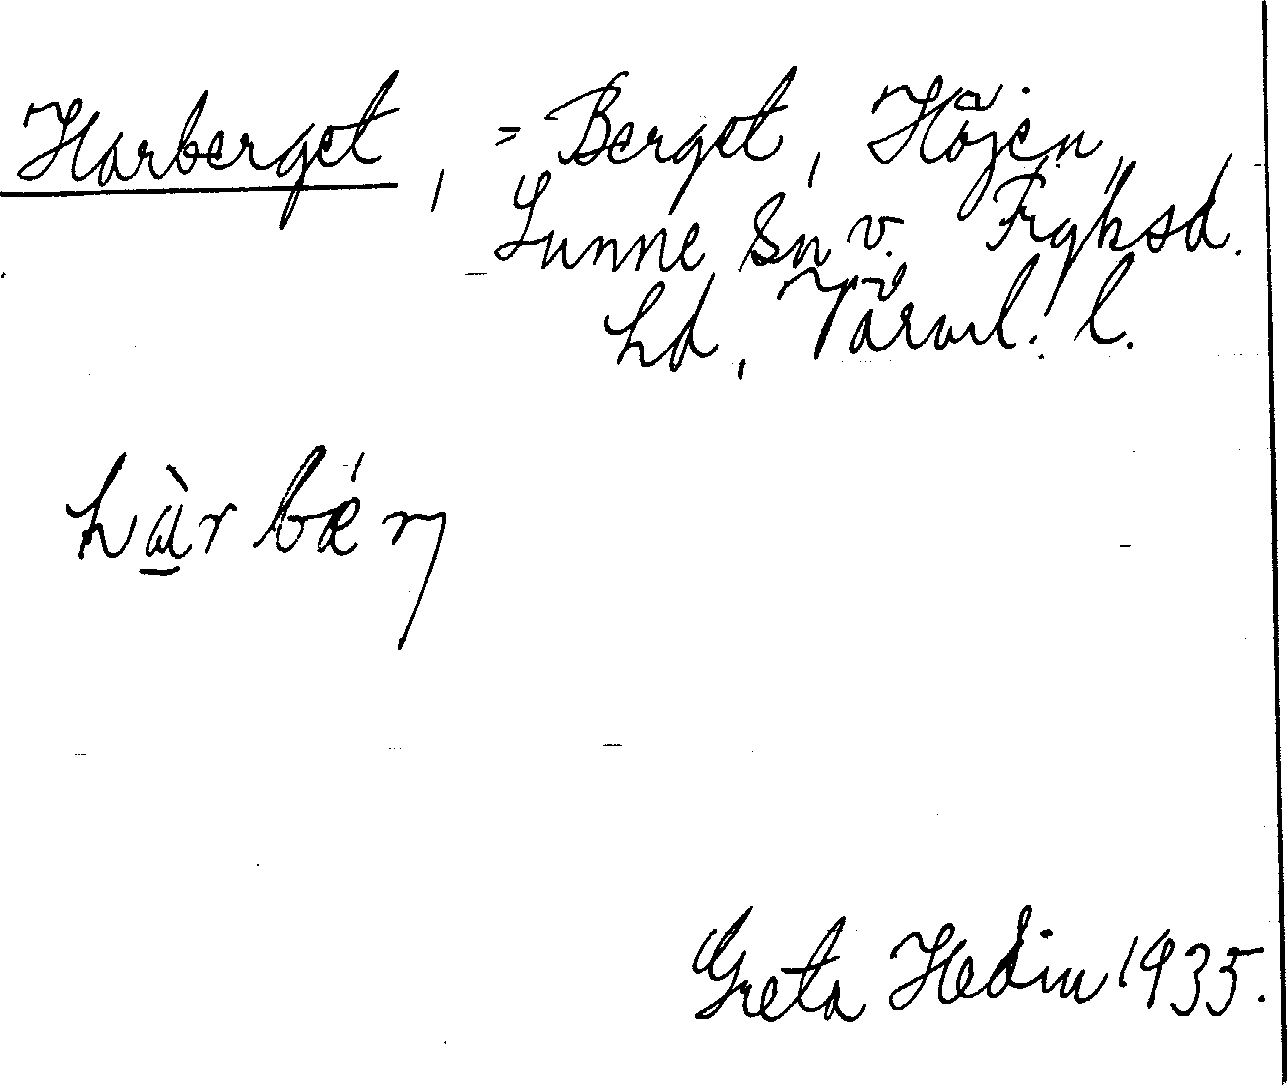 Harberget, = Berget, Höjen,
Sunne sn v. Fryksd.
hd, Värml. l.
hàr bǽr
Greta Hedin 1935.